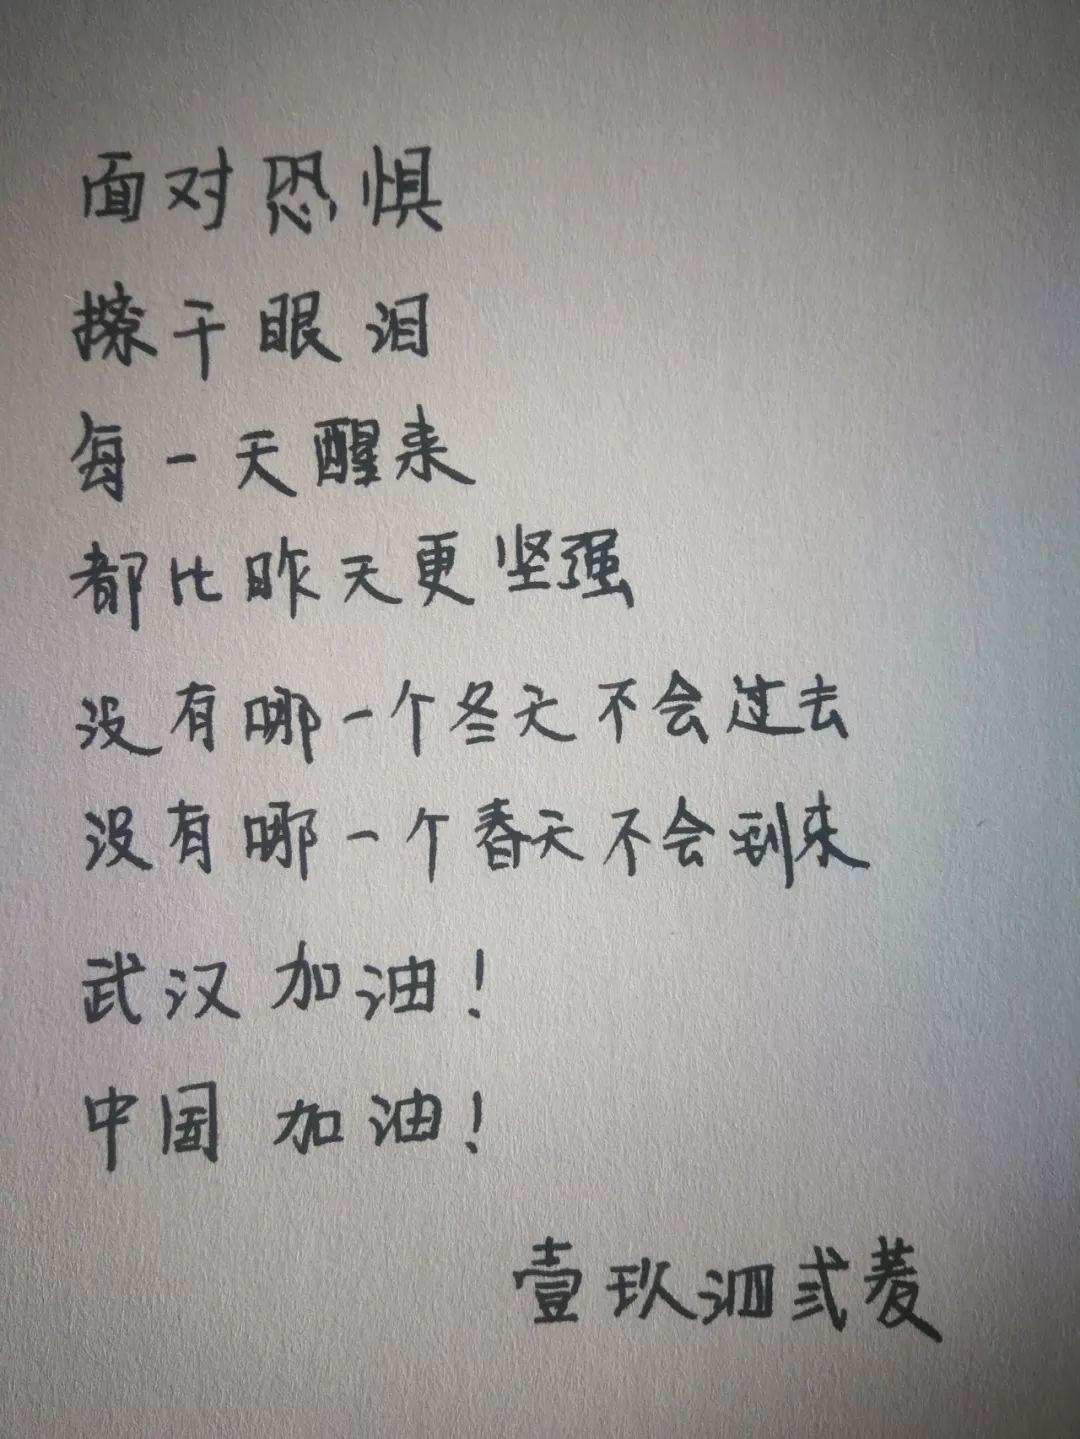 面对恐惧
撩干眼泪
每一天醒来
都比昨天更坚强
没有哪一个冬天不会过去
没有哪一个春天不会到来
武汉加油！
中国加油！
壹玖泗弍菱